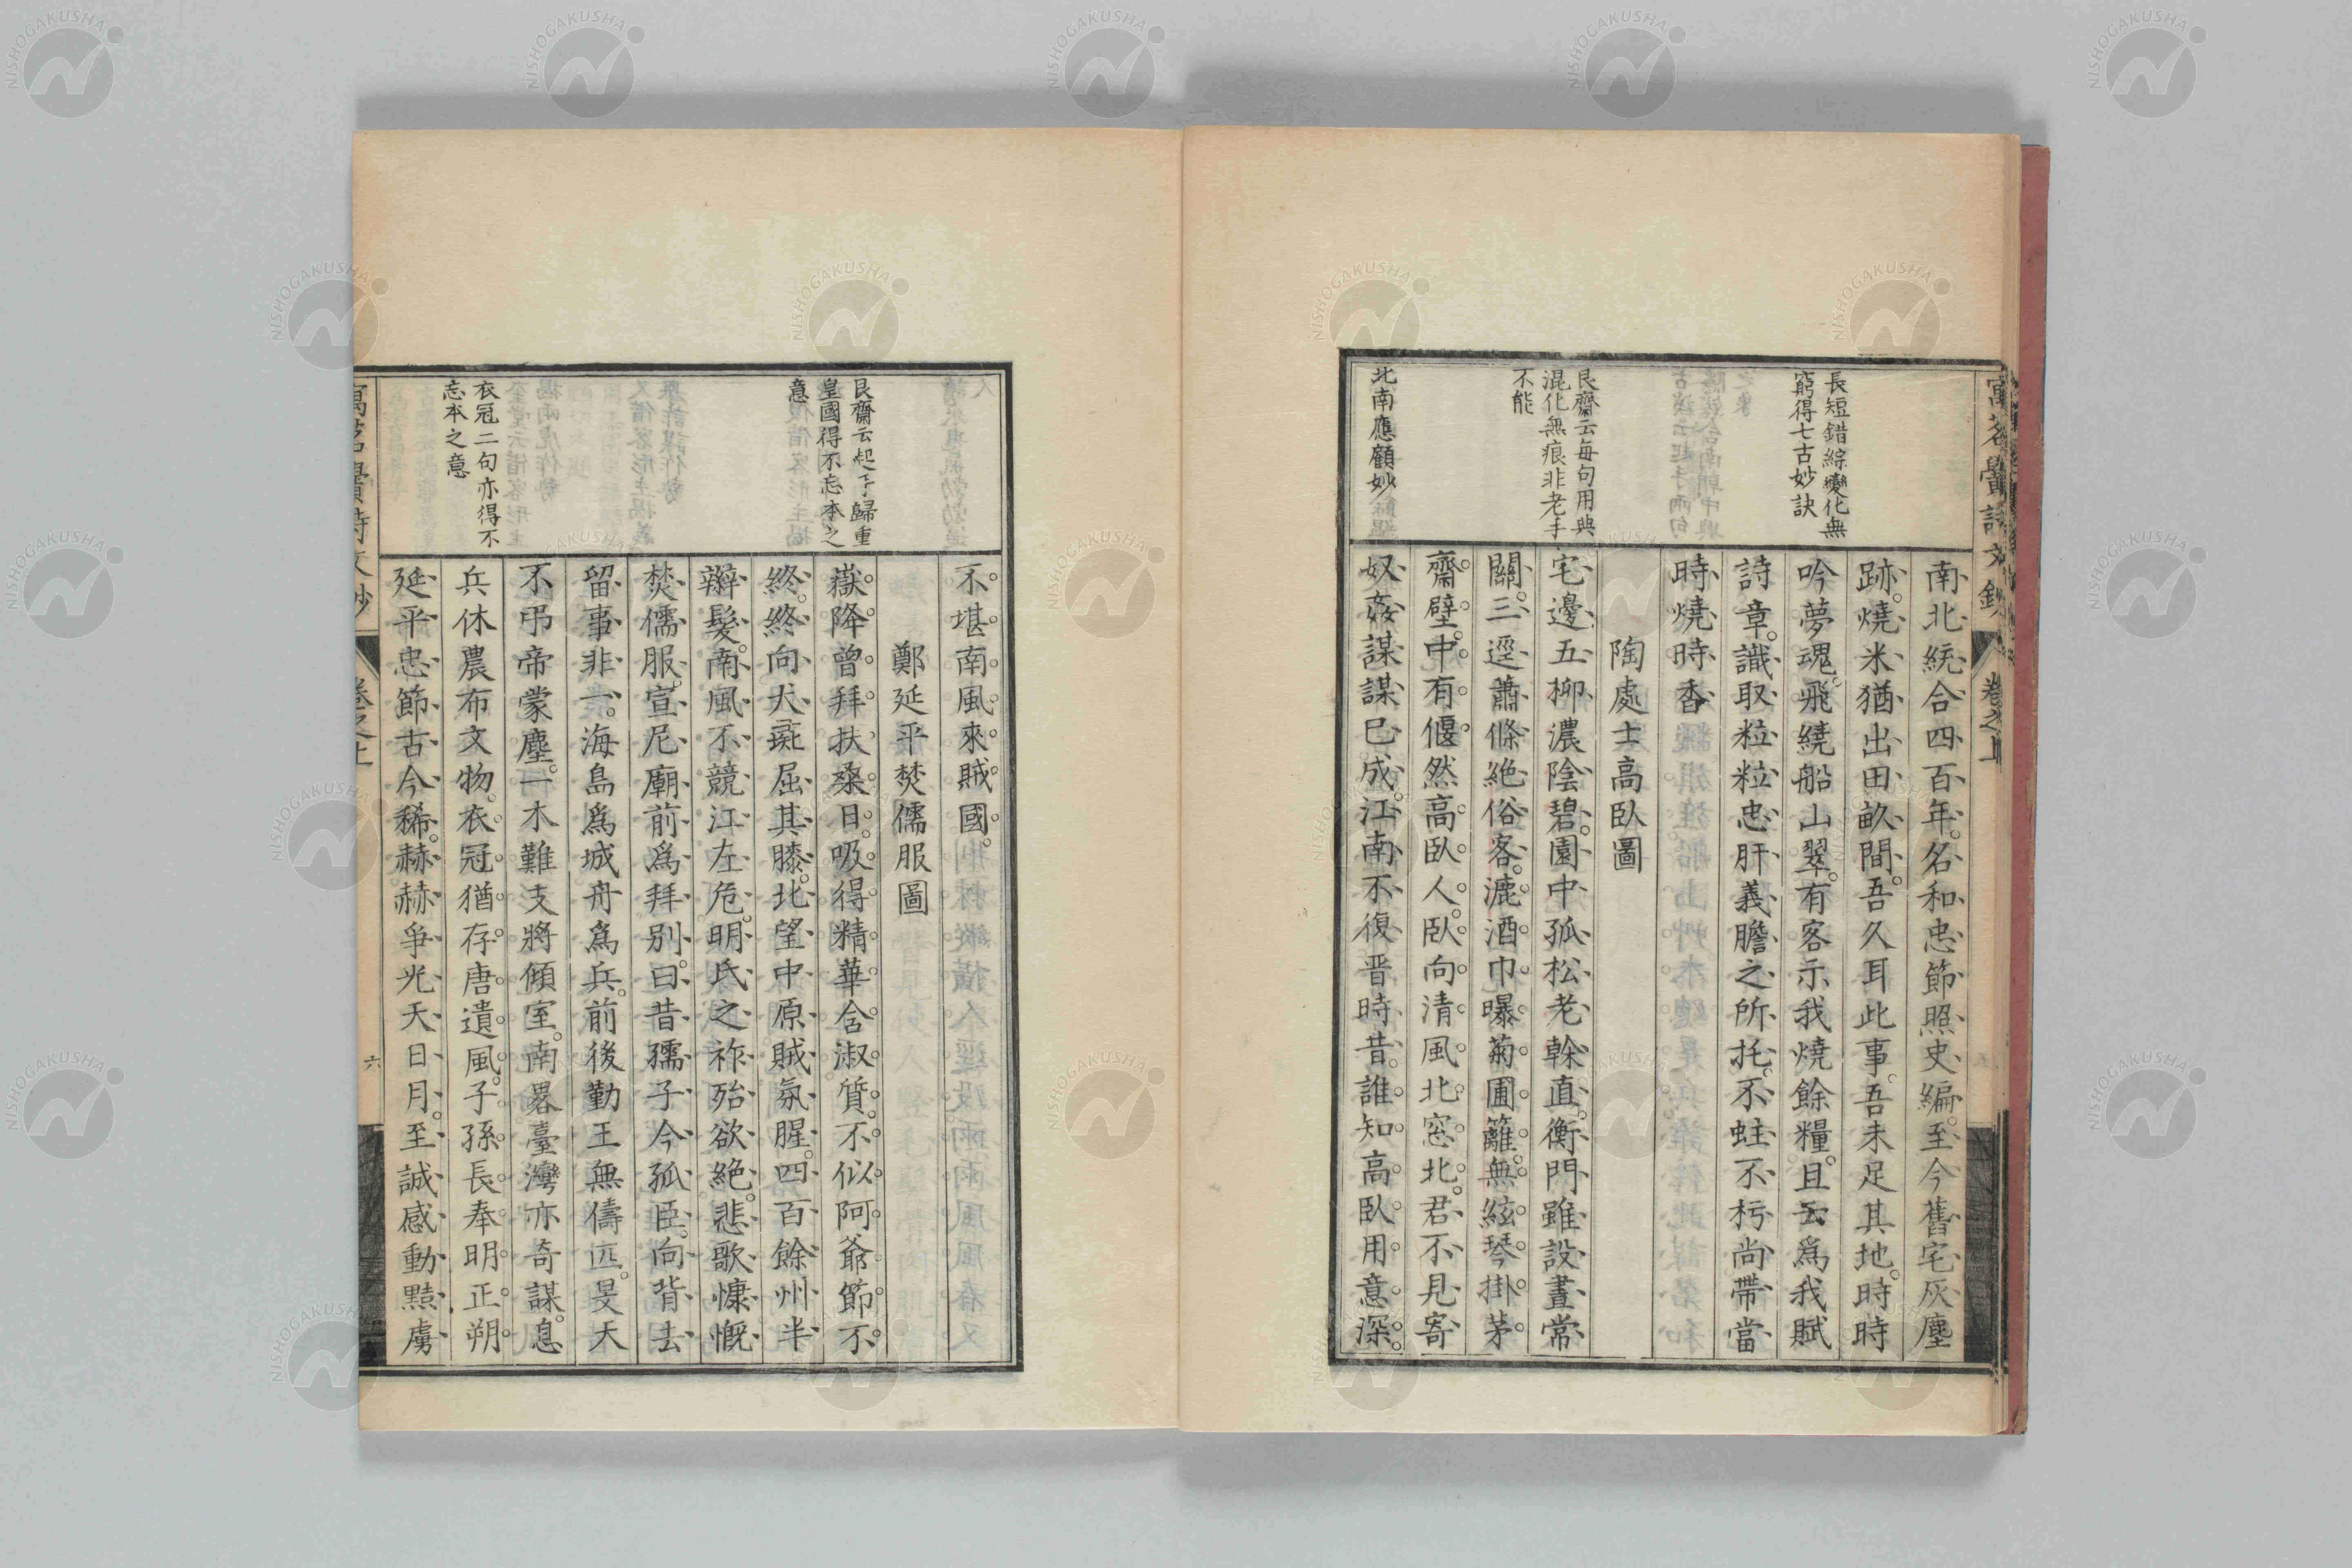 長短錯綜變化無
窮得七古妙訣
艮齋云每句用典
混化無痕非老手
不能
北南應顧妙
南北統合四百年。名和忠節照史編。至今舊宅灰塵
跡。燒米猶出田畝間。吾久耳此事。吾未足其地。時時
吟夢魂。飛繞船山翠。有客示我燒餘糧。且云爲我賦
詩章。識取粒粒忠肝義膽之所托。不蛀不朽尚帶當
時燒時香
陶處士高臥圖
宅邊五柳濃陰碧。園中孤松老幹直。衡門雖設晝常
關。三逕蕭條絶俗客。漉酒巾曝菊圃籬。無絃琴掛茅
齋壁。中有偃然高臥人。臥向清風北窓北。君不見寄
奴姦謀謀已成。江南不復晋時昔。誰知高臥用意深。
卷之上
艮齋云起手歸重
皇國得不忘本之
意
衣冠二句亦得不
忘本之意
不堪南風來賊國。
鄭延平焚儒服圖
嶽降曾拜扶桑日。吸得精華含淑質。不似阿爺節不
終。終向犬羝屈其膝。北望中原賊氛腥。四百餘州半
辮髮。南風不競江左危。明氏之祚殆欲絶。悲歌慷慨
焚儒服。宣尼廟前爲拜別。曰昔孺子今孤臣。向背去
留事非一。海島爲城舟爲兵。前後勤王無儔匹。旻天
不弔帝蒙塵。一木難支將傾室。南畧臺灣亦奇謀。息
兵休農布文物。衣冠猶存唐遺風。子孫長奉明正朔
延平忠節古今稀。赫赫爭光天日月。至誠感動黠虜
六